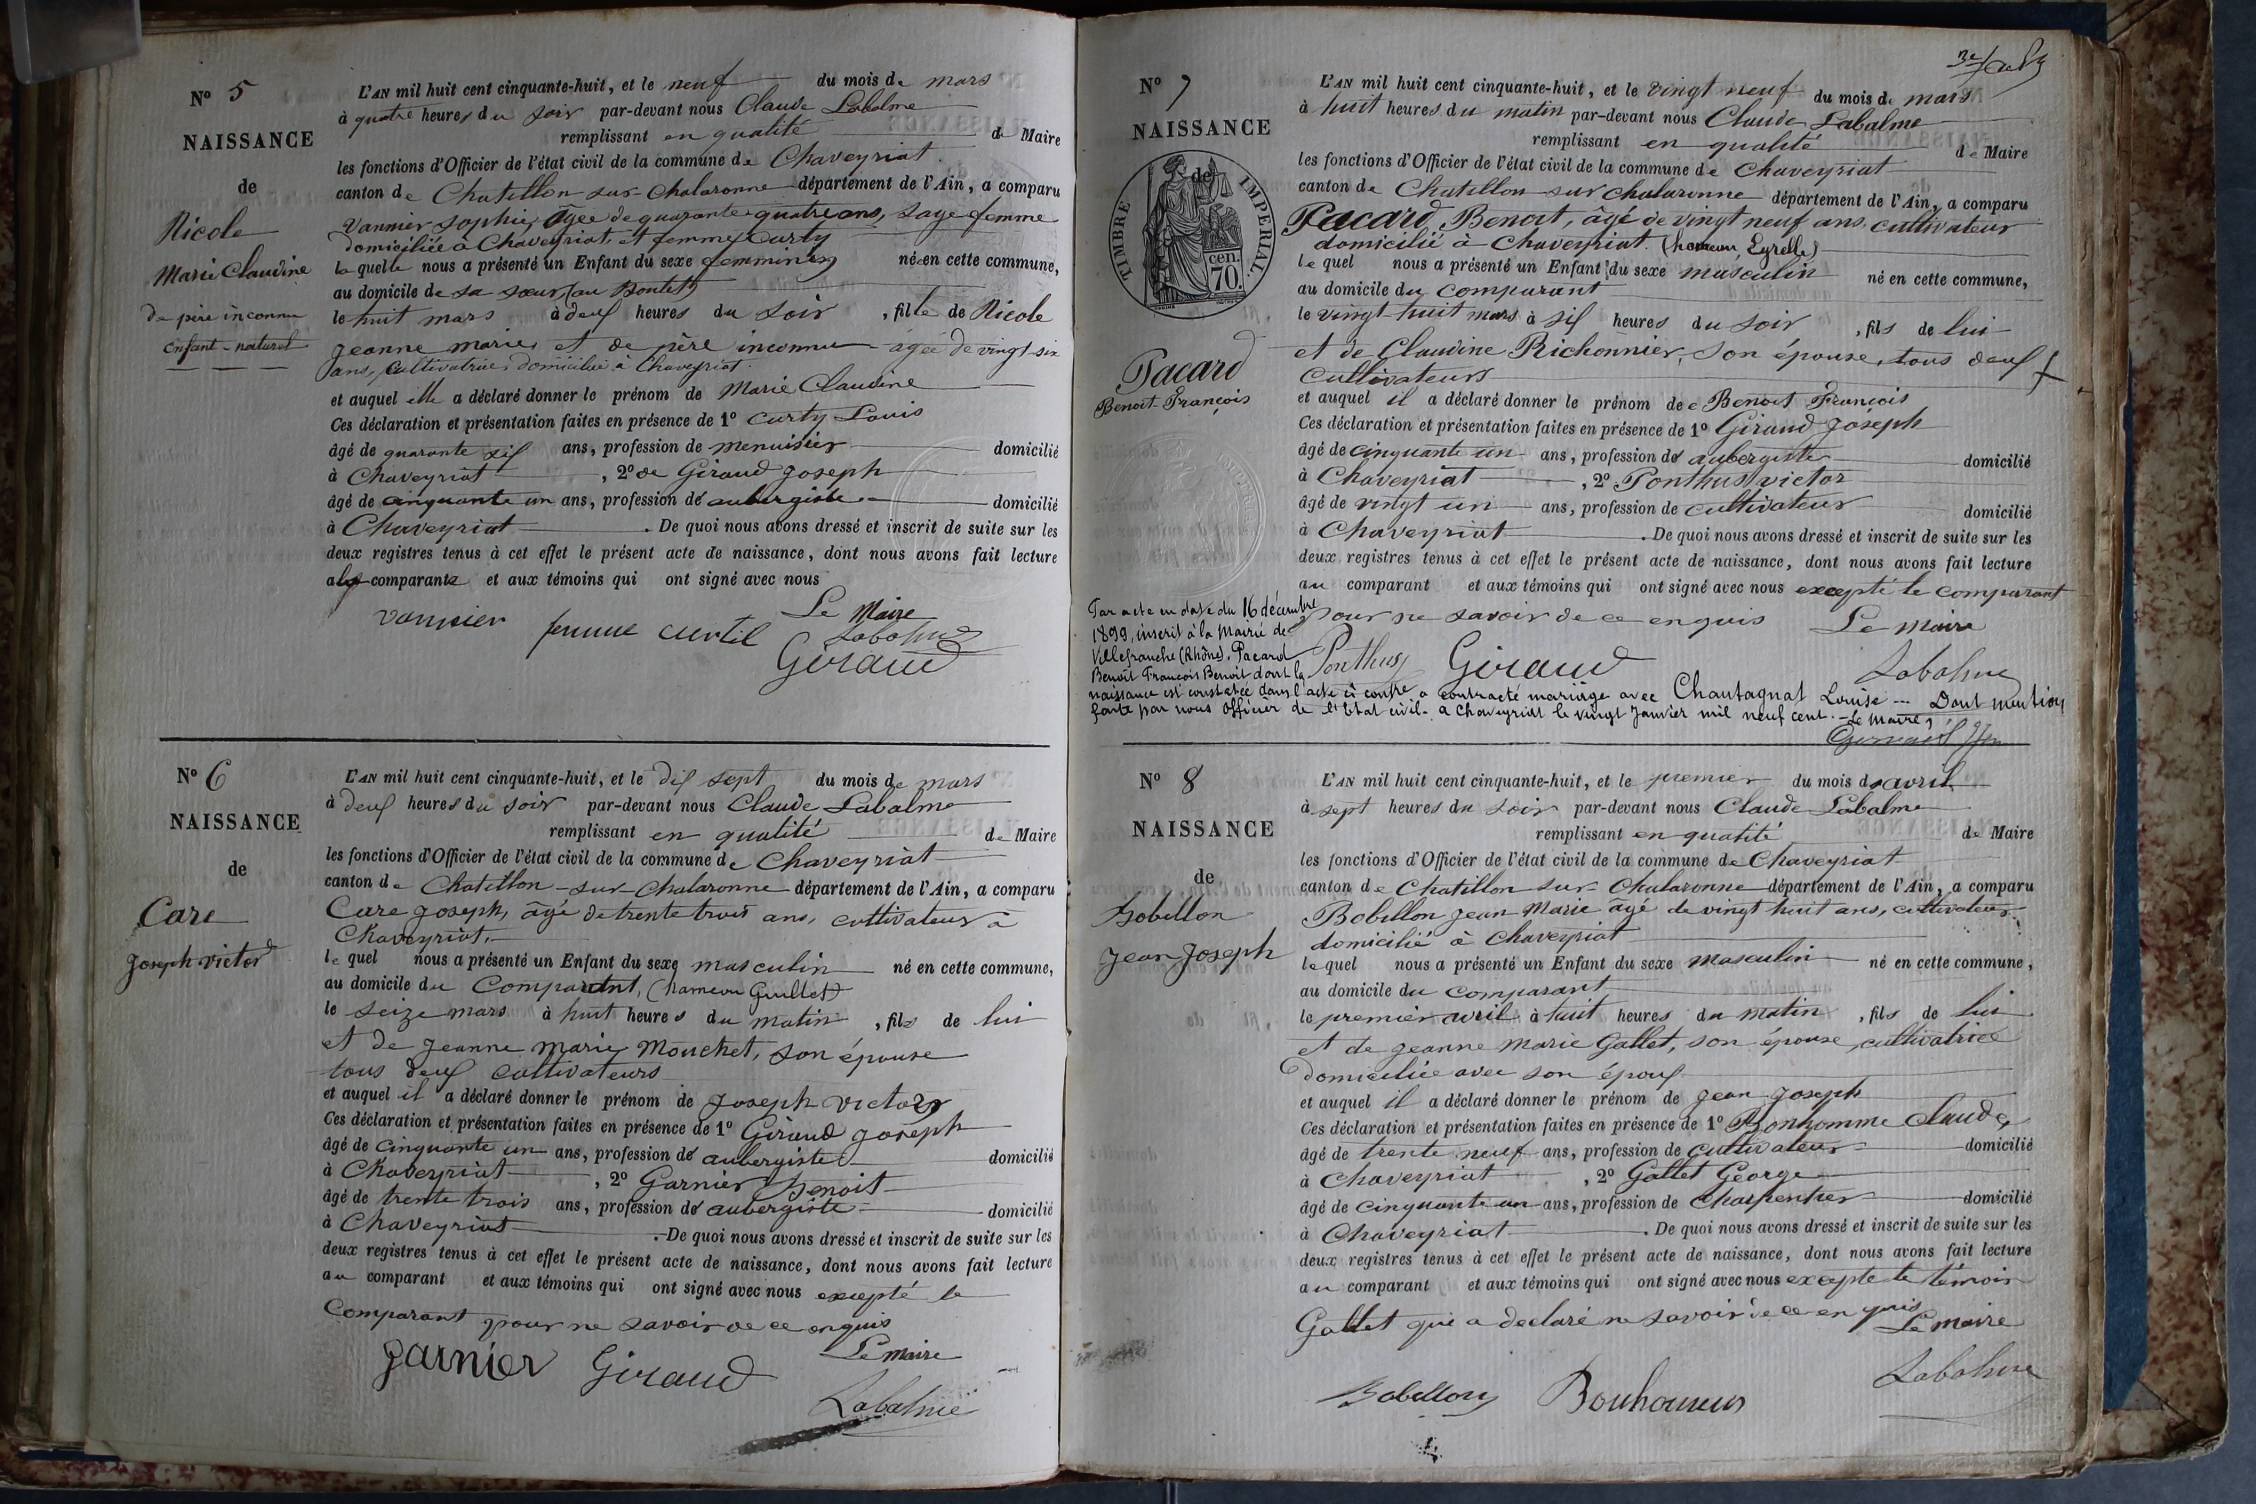 Nº 5
NAISSANCE
de
Nicole
Marie Claudine
de père inconnu
enfant naturel
L'AN mil huit cent cinquante-huit, et le neuf du mois de mars
à quatre heures du soir par-devant nous Claude Labalme
remplissant en qualité de Maire
les fonctions d'Officier de l'état civil de la commune de Chaveyriat
canton de Chatillon sur Chalaronne département de l'Ain, a comparu
Vannier Sophie, âgée de quarante quatre ans, sage femme
domiciliée à Chaveyriat, et femme Curty
laquelle nous a présenté un Enfant du sexe femminin né en cette commune,
au domicile de sa sœur,
le huit mars à deux heures du soir, fille de Nicole
jeanne marie, et de père inconnu âgée de vingt six
ans, cultivatrice, domiciliée à Chaveyriat.
et auquel elle a déclaré donner le prénom de Marie Claudine
Ces déclaration et présentation faites en présence de 1º Curty Louis
âgé de quarante six ans, profession de menuisier domicilié
à Chaveyriat, 2º de Giraud joseph
âgé de cinquante un ans, profession de aubergiste domicilié
à Chaveyriat. De quoi nous avons dressé et inscrit de suite sur les
deux registres tenus à cet effet le présent acte de naissance, dont nous avons fait lecture
comparante et aux témoins qui ont signé avec nous
Le Maire
vannier femme curtil Labalme
Giraud
Nº 6
NAISSANCE
de
Care
joseph victor
L'AN mil huit cent cinquante-huit, et le dix sept du mois de mars
à deux heures du soir par-devant nous Claude Labalme
remplissant en qualité de Maire
les fonctions d'Officier de l'état civil de la commune de Chaveyriat
canton de Chatillon-sur-Chalaronne département de l'Ain, a comparu
Care joseph, âgé de trente trois ans, cultivateur à
Chaveyriat,
lequel nous a présenté un Enfant du sexe masculin né en cette commune,
au domicile du Comparant, (hameau Guillet)
le seize mars à huit heures du matin, fils de lui
et de jeanne marie Mouchet, son épouse
tous deux cultivateurs
et auquel il a déclaré donner le prénom de joseph victor
Ces déclaration et présentation faites en présence de 1º Giraud joseph
âgé de cinquante un ans, profession de aubergiste domicilié
à Chaveyriat, 2º Garnier benoit
âgé de trente trois ans, profession de aubergiste domicilié
à Chaveyriat. De quoi nous avons dressé et inscrit de suite sur les
deux registres tenus à cet effet le présent acte de naissance, dont nous avons fait lecture
au comparant et aux témoins qui ont signé avec nous excepté le
Comparant pour ne savoir de ce enquis
Le maire
garnier Giraud
Labalme
Nº 7
NAISSANCE
de
TIMBRE IMPERIAL
70 cen.
Pacard
Benoit-François
L'AN mil huit cent cinquante-huit, et le vingt neuf du mois de mars
à huit heures du matin par-devant nous Claude Labalme
remplissant en qualité de Maire
les fonctions d'Officier de l'état civil de la commune de Chaveyriat
canton de Chatillon sur Chalaronne département de l'Ain, a comparu
Pacard Benoit, âgé de vingt neuf ans, cultivateur
domicilié à Chaveyriat. (hameau Eyrelle)
lequel nous a présenté un Enfant du sexe masculin né en cette commune,
au domicile du comparant
le vingt huit mars à six heures du soir, fils de lui
et de Claudine Richonnier, son épouse, tous deux
cultivateurs
et auquel il a déclaré donner le prénom de Benoit François
Ces déclaration et présentation faites en présence de 1º Giraud joseph
âgé de cinquante un ans, profession de aubergiste domicilié
à Chaveyriat, 2º Ponthus victor
âgé de vingt un ans, profession de cultivateur domicilié
à Chaveyriat. De quoi nous avons dressé et inscrit de suite sur les
deux registres tenus à cet effet le présent acte de naissance, dont nous avons fait lecture
au comparant et aux témoins qui ont signé avec nous excepté le comparant
pour ne savoir de ce enquis Le maire
Ponthus Giraud Labalme
Par acte en date du 16 décembre
1899, inscrit à la Mairie de
Villefranche (Rhône), Pacard
Benoît François Benoit dont la
naissance est constatée dans l'acte ci contre a contracté mariage avec Chantagnat Louise --- Dont mention
faite par nous Officier de l'Etat civil. a Chaveyriat le vingt Janvier mil neuf cent. - Le Maire,
Nº 8
NAISSANCE
de
Bobillon
Jean Joseph
L'AN mil huit cent cinquante-huit, et le premier du mois d'avril
à sept heures du soir par-devant nous Claude Labalme
remplissant en qualité de Maire
les fonctions d'Officier de l'état civil de la commune de Chaveyriat
canton de Chatillon sur Chalaronne département de l'Ain, a comparu
Bobillon jean Marie âgé de vingt huit ans, cultivateur
domicilié à Chaveyriat
lequel nous a présenté un Enfant du sexe masculin né en cette commune,
au domicile du comparant
le premier avril à huit heures du matin, fils de lui
et de jeanne marie Gallet, son épouse, cultivatrice
domiciliée avec son époux
et auquel il a déclaré donner le prénom de jean joseph
Ces déclaration et présentation faites en présence de 1º Bonhomme Claude,
âgé de trente neuf ans, profession de cultivateur domicilié
à Chaveyriat, 2º Gallet George
âgé de cinquante un ans, profession de Charpentier domicilié
à Chaveyriat. De quoi nous avons dressé et inscrit de suite sur les
deux registres tenus à cet effet le présent acte de naissance, dont nous avons fait lecture
au comparant et aux témoins qui ont signé avec nous excepté le témoin
Gallet qui a declaré ne savoir de ce enquis
Le maire
Labalme
Bobillon Bonhomme